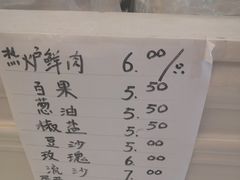 热炉鲜肉 6.00/只
百果 5.50
葱油 5.50
椒盐 5.50
豆沙 5.50
玫瑰 6.00
流沙 7.00